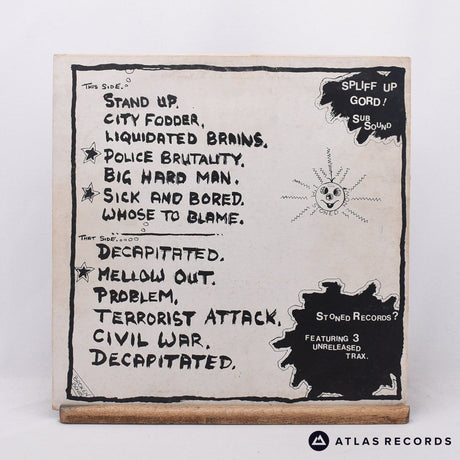 THIS SIDE..
STAND UP.
CITY FODDER.
LIQUIDATED BRAINS.
POLICE BRUTALITY.
BIG HARD MAN.
SICK AND BORED.
WHOSE TO BLAME.
THAT SIDE.....
DECAPITATED.
MELLOW OUT.
PROBLEM.
TERRORIST ATTACK.
CIVIL WAR.
DECAPITATED.
SPLIFF UP
GORD!
SUB
SOUND
STONED RECORDS?
FEATURING 3
UNRELEASED
TRAX.
ATLAS RECORDS